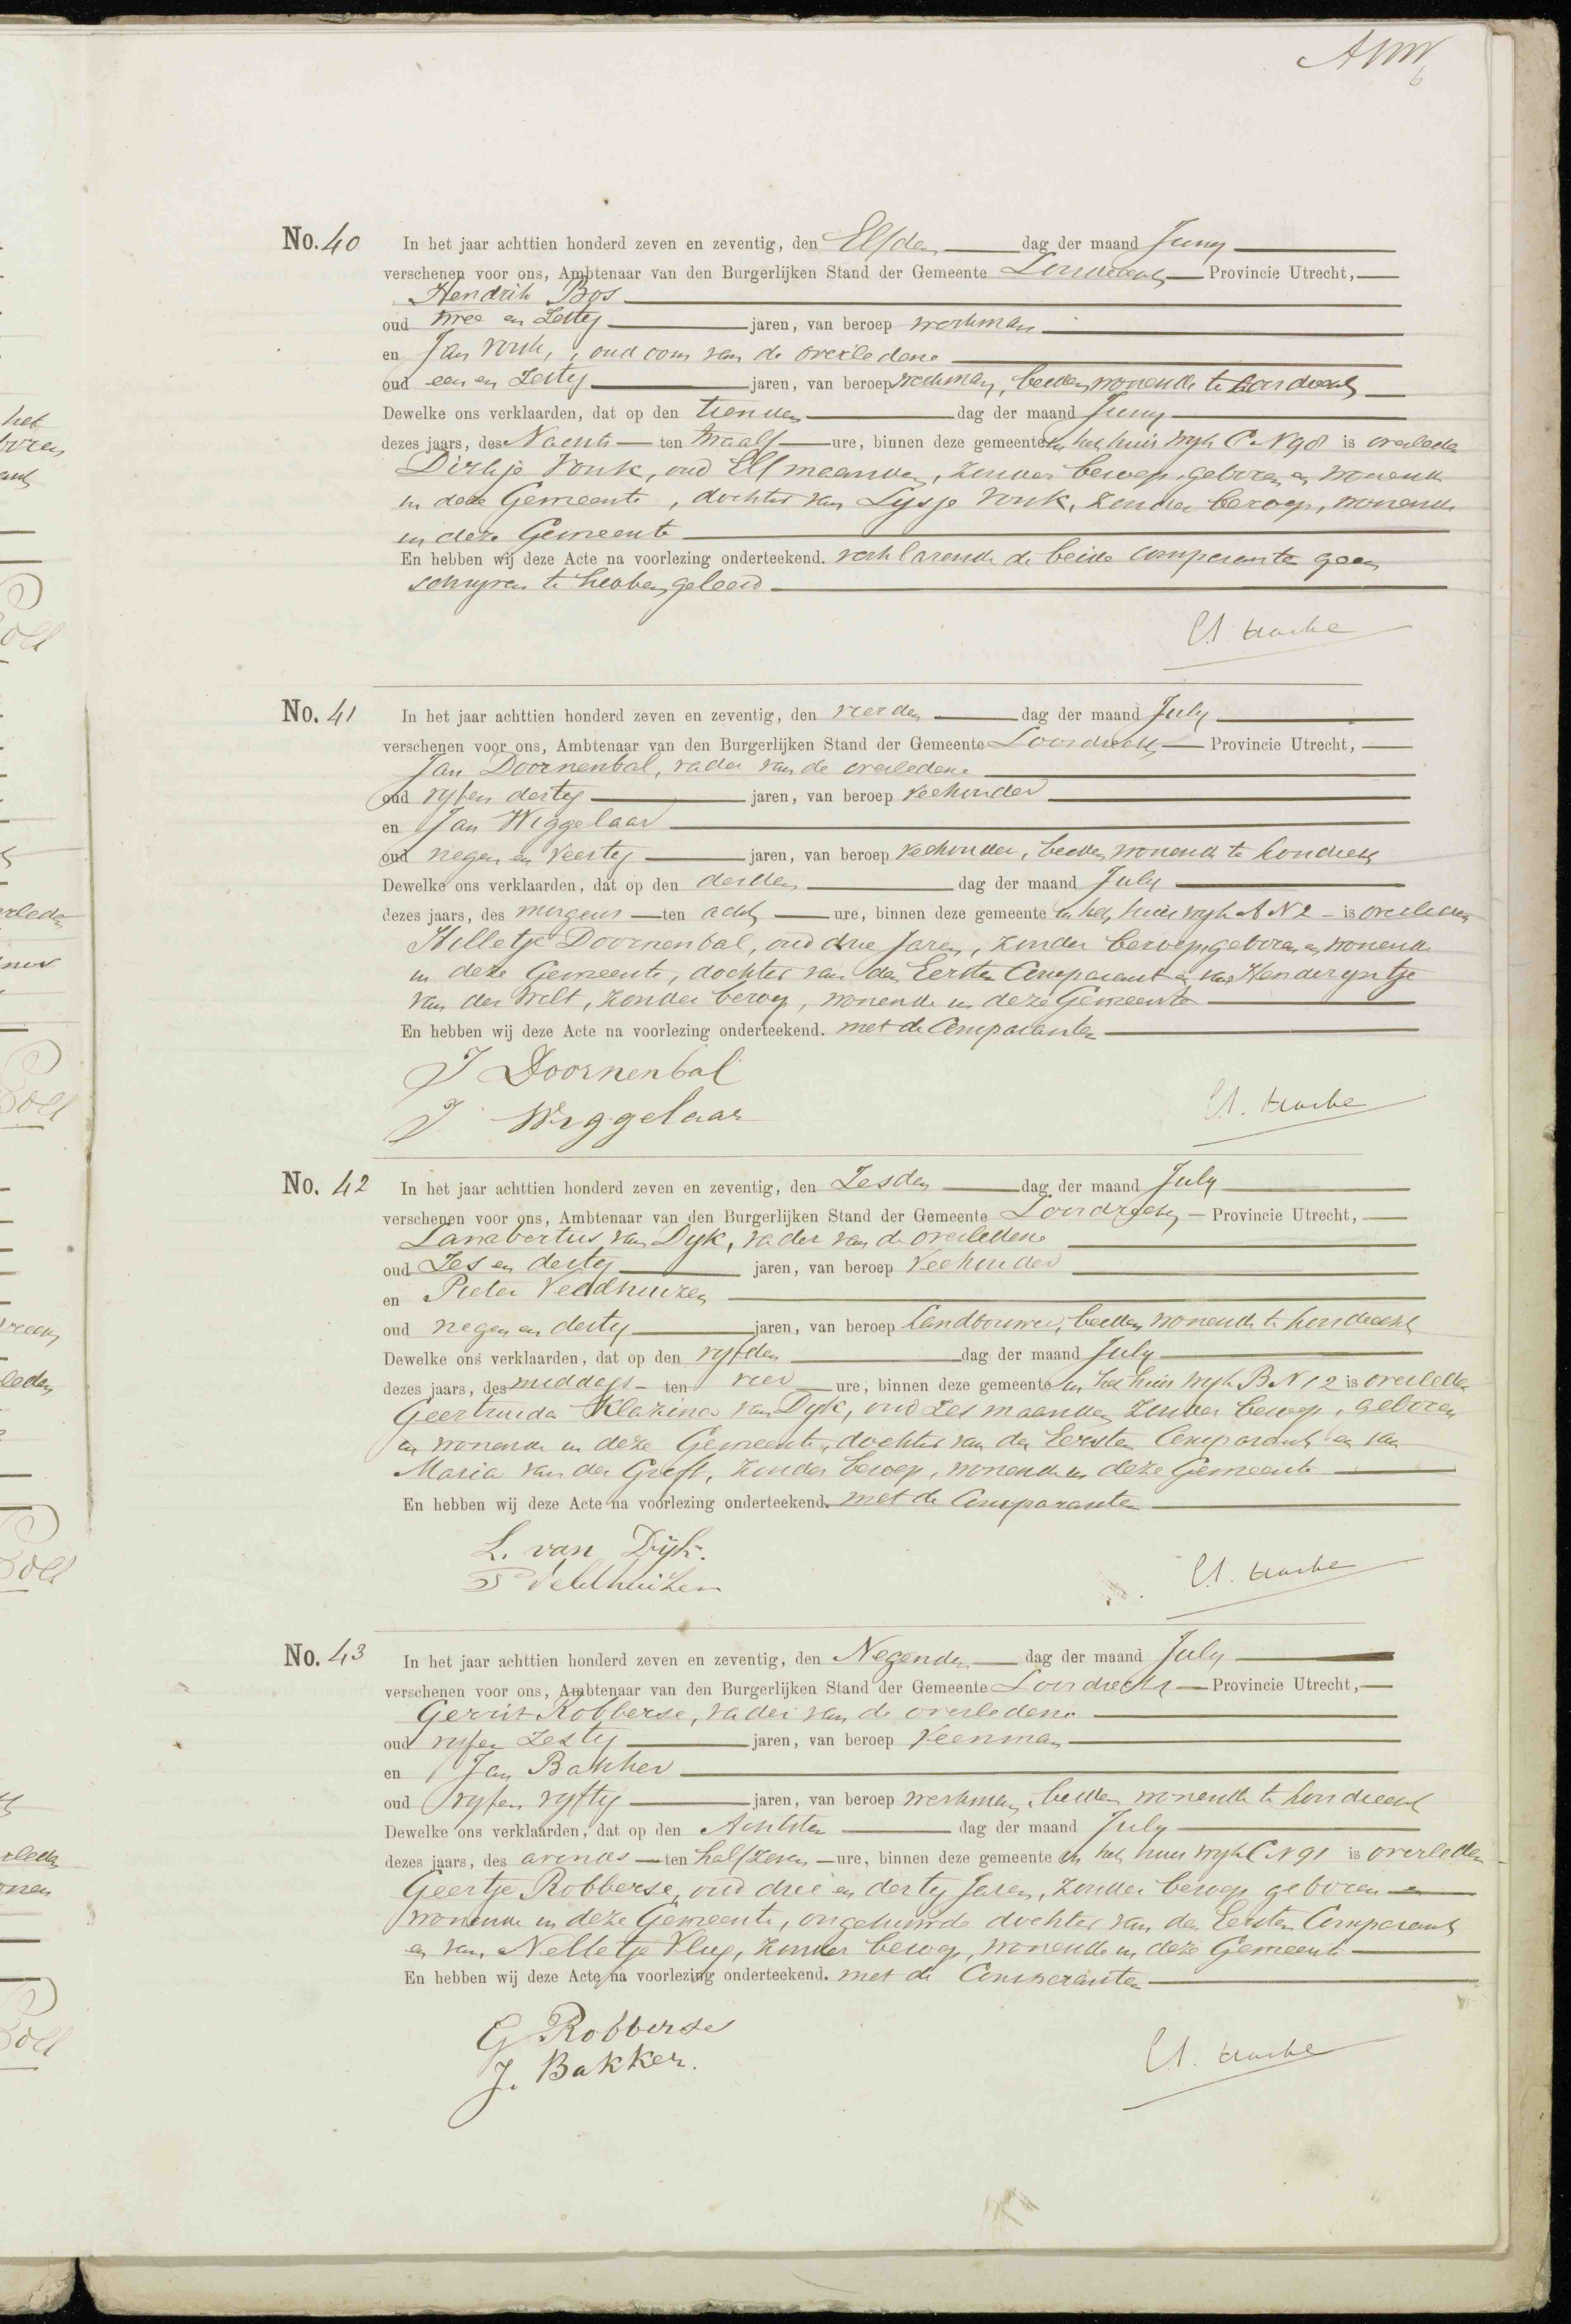 No. 40 In het jaar achttien honderd zeven en zeventig, den Elfden dag der maand Juny
verschenen voor ons, Ambtenaar van den Burgerlijken Stand der Gemeente Loosdrecht Provincie Utrecht,
Hendrik Bos
oud twee en Zestig jaren, van beroep werkman
en Jan Vonk, oud oom van de overledene
oud een en Zestig jaren, van beroep werkman, beiden wonende te Loosdrecht
Dewelke ons verklaarden, dat op den tienden dag der maand Juny
dezes jaars, des Nachts ten twaalf ure, binnen deze gemeente in het huis wyk C N 98 is overleden
Dirkje Vonk, oud Elf maanden, zonder beroep, geboren en wonende
in deze Gemeente, dochter van Lysje Vonk, zonder beroep, wonende
in deze Gemeente
En hebben wij deze Acte na voorlezing onderteekend. verklarende de beide Comparanten geen
schryven te hebben geleerd
No. 41 In het jaar achttien honderd zeven en zeventig, den vierden dag der maand July
verschenen voor ons, Ambtenaar van den Burgerlijken Stand der Gemeente Loosdrecht Provincie Utrecht,
Jan Doornenbal, vader van de overledene
oud vyf en dertig jaren, van beroep Veehouder
en Jan Wiggelaar
oud negen en Veertig jaren, van beroep Veehouder, beiden wonende te Loosdrecht
Dewelke ons verklaarden, dat op den derden dag der maand July
dezes jaars, des morgens ten acht ure, binnen deze gemeente in het huis wyk A N 2 is overleden
Hilletje Doornenbal, oud drie Jaren, zonder beroep, geboren en wonende
in deze Gemeente, dochter van den Eersten Comparant en van Henderyntje
van der Welt, zonder beroep, wonende in deze Gemeente
En hebben wij deze Acte na voorlezing onderteekend. met de Comparanten
J Doornenbal
J Wiggelaar
No. 42 In het jaar achttien honderd zeven en zeventig, den Zesden dag der maand July
verschenen voor ons, Ambtenaar van den Burgerlijken Stand der Gemeente Loosdrecht Provincie Utrecht,
Lambertus van Dyk, vader van de overledene
oud Zes en dertig jaren, van beroep Veehouder
en Pieter Veldhuizen
oud negen en dertig jaren, van beroep Landbouwer, beiden wonende te Loosdrecht
Dewelke ons verklaarden, dat op den vyfden dag der maand July
dezes jaars, des middags ten vier ure, binnen deze gemeente in het huis wyk B N 12 is overleden
Geertruida Klazina van Dyk, oud Zes maanden zonder beroep, geboren
en wonende in deze Gemeente, dochter van den Eersten Comparant en van
Maria van der Greft, zonder beroep, wonende in deze Gemeente
En hebben wij deze Acte na voorlezing onderteekend. met de Comparanten
L. van Dijk.
P Veldhuizen
No. 43 In het jaar achttien honderd zeven en zeventig, den Negenden dag der maand July
verschenen voor ons, Ambtenaar van den Burgerlijken Stand der Gemeente Loosdrecht Provincie Utrecht,
Gerrit Robberse, vader van de overledene
oud vyf en Zestig jaren, van beroep Veenman
en Jan Bakker
oud vyf en vyftig jaren, van beroep werkman, beiden wonende te Loosdrecht
Dewelke ons verklaarden, dat op den Achtsten dag der maand July
dezes jaars, des avonds ten half Zeven ure, binnen deze gemeente in het huis wyk C N 91 is overleden
Geertje Robberse, oud drie en dertig Jaren, zonder beroep geboren en
wonende in deze Gemeente, ongehuwde dochter van den Eersten Comparant
en van Nelletje Vlug, zonder beroep, wonende in deze Gemeente
En hebben wij deze Acte na voorlezing onderteekend. met de Comparanten
G Robberse
J. Bakker.